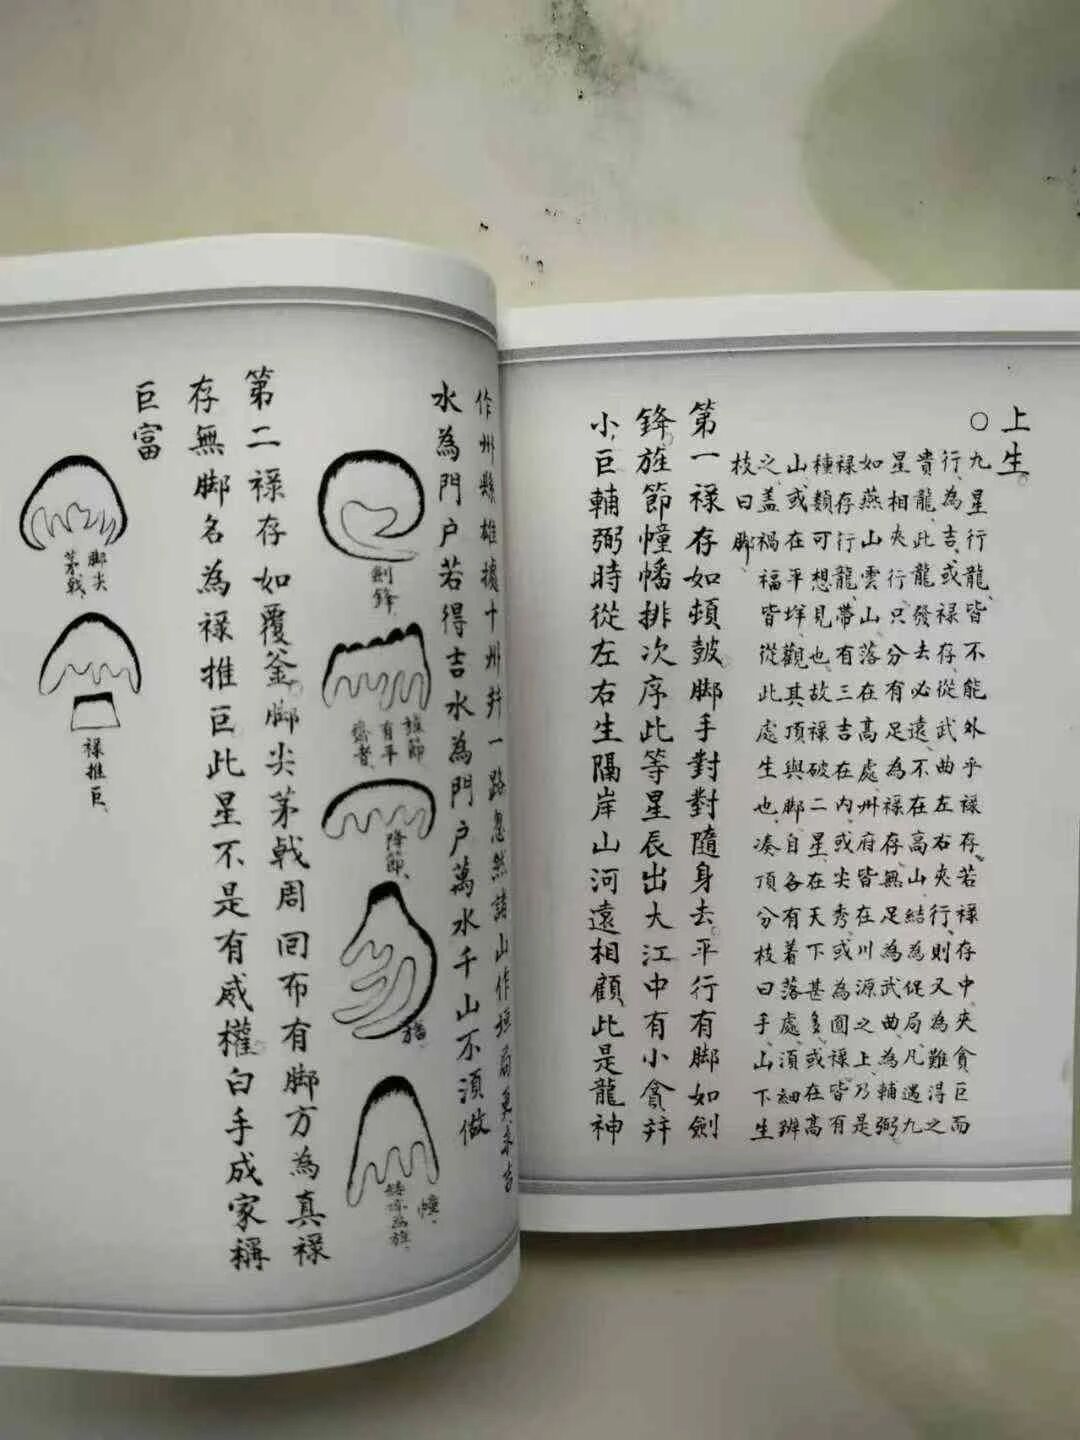 上生
○
九星行龍皆不能外乎禄存若禄存中夾貪巨而
行為吉或禄存從武曲左右夾行則又為難得之
貴龍此龍發去必遠不在高山結為促局凡遇九
星相夾行只分有足為禄存無足為武曲為輔弼
如燕山雲山落在高處州府皆在川源之上乃是
禄存行龍帶有三吉在内或尖秀或為圓禄皆有
種類可想見也故禄破二星在天下甚多或在高
山或在平垟觀其頂與脚自各有着落處須細辨
之盖禍福皆從此處生也湊頂分枝曰手山下生
枝曰脚
第一禄存如頓皷脚手對對隨身去平行有脚如劍
鋒旌節幢幡排次序此等星辰出大江中有小貪并
小巨輔弼時從左右生隔岸山河遠相顧此是龍神
作州縣雄據十州并一路忽然諸山作垣局更求吉
水為門户若得吉水為門户萬水千山不須做
劍鋒
旌節
有平
齊者
降節
幢
第二禄存如覆釜脚尖茅戟周囬布有脚方為真禄
存無脚名為禄推巨此星不是有威權白手成家稱
巨富
脚尖
茅戟
禄推巨